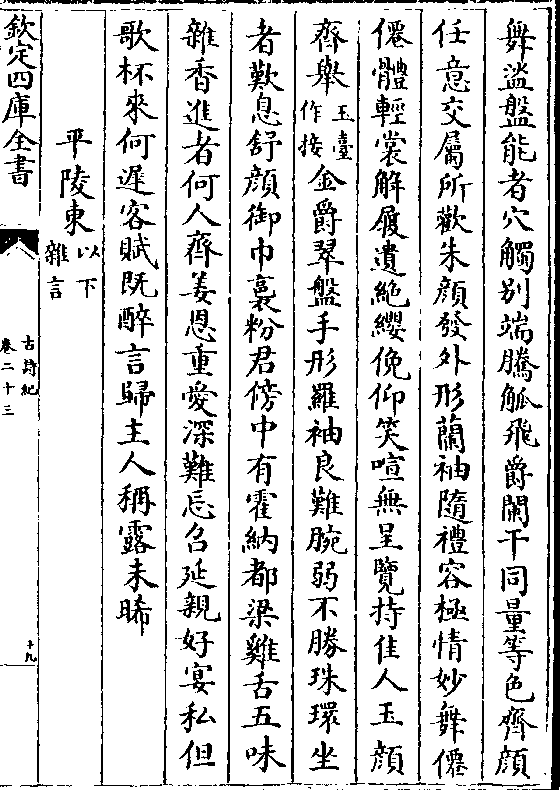 舞盜盤能者穴觸别端騰觚飛爵闌干同量等色齊顔
任意交屬所歡朱顔發外形蘭袖隨禮容極情妙舞僊
僊體輕裳解履遺絶纓俛仰笑喧無呈覽持佳人玉顔
齊舉玉臺作接金爵翠盤手形羅袖良難腕弱不勝珠環坐
者歎息舒顔御巾裛粉君傍中有霍納都梁雞舌五味
雜香進者何人齊姜恩重愛深難忘召延親好宴私但
歌杯來何遲客賦既醉言歸主人稱露未晞
平陵東以下雜言
欽定四庫全書
古詩紀
卷二十三
十九